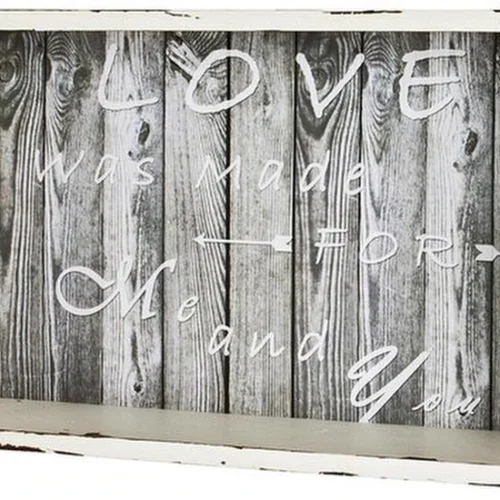 LOVE
Was Made
FOR
Me
and
You